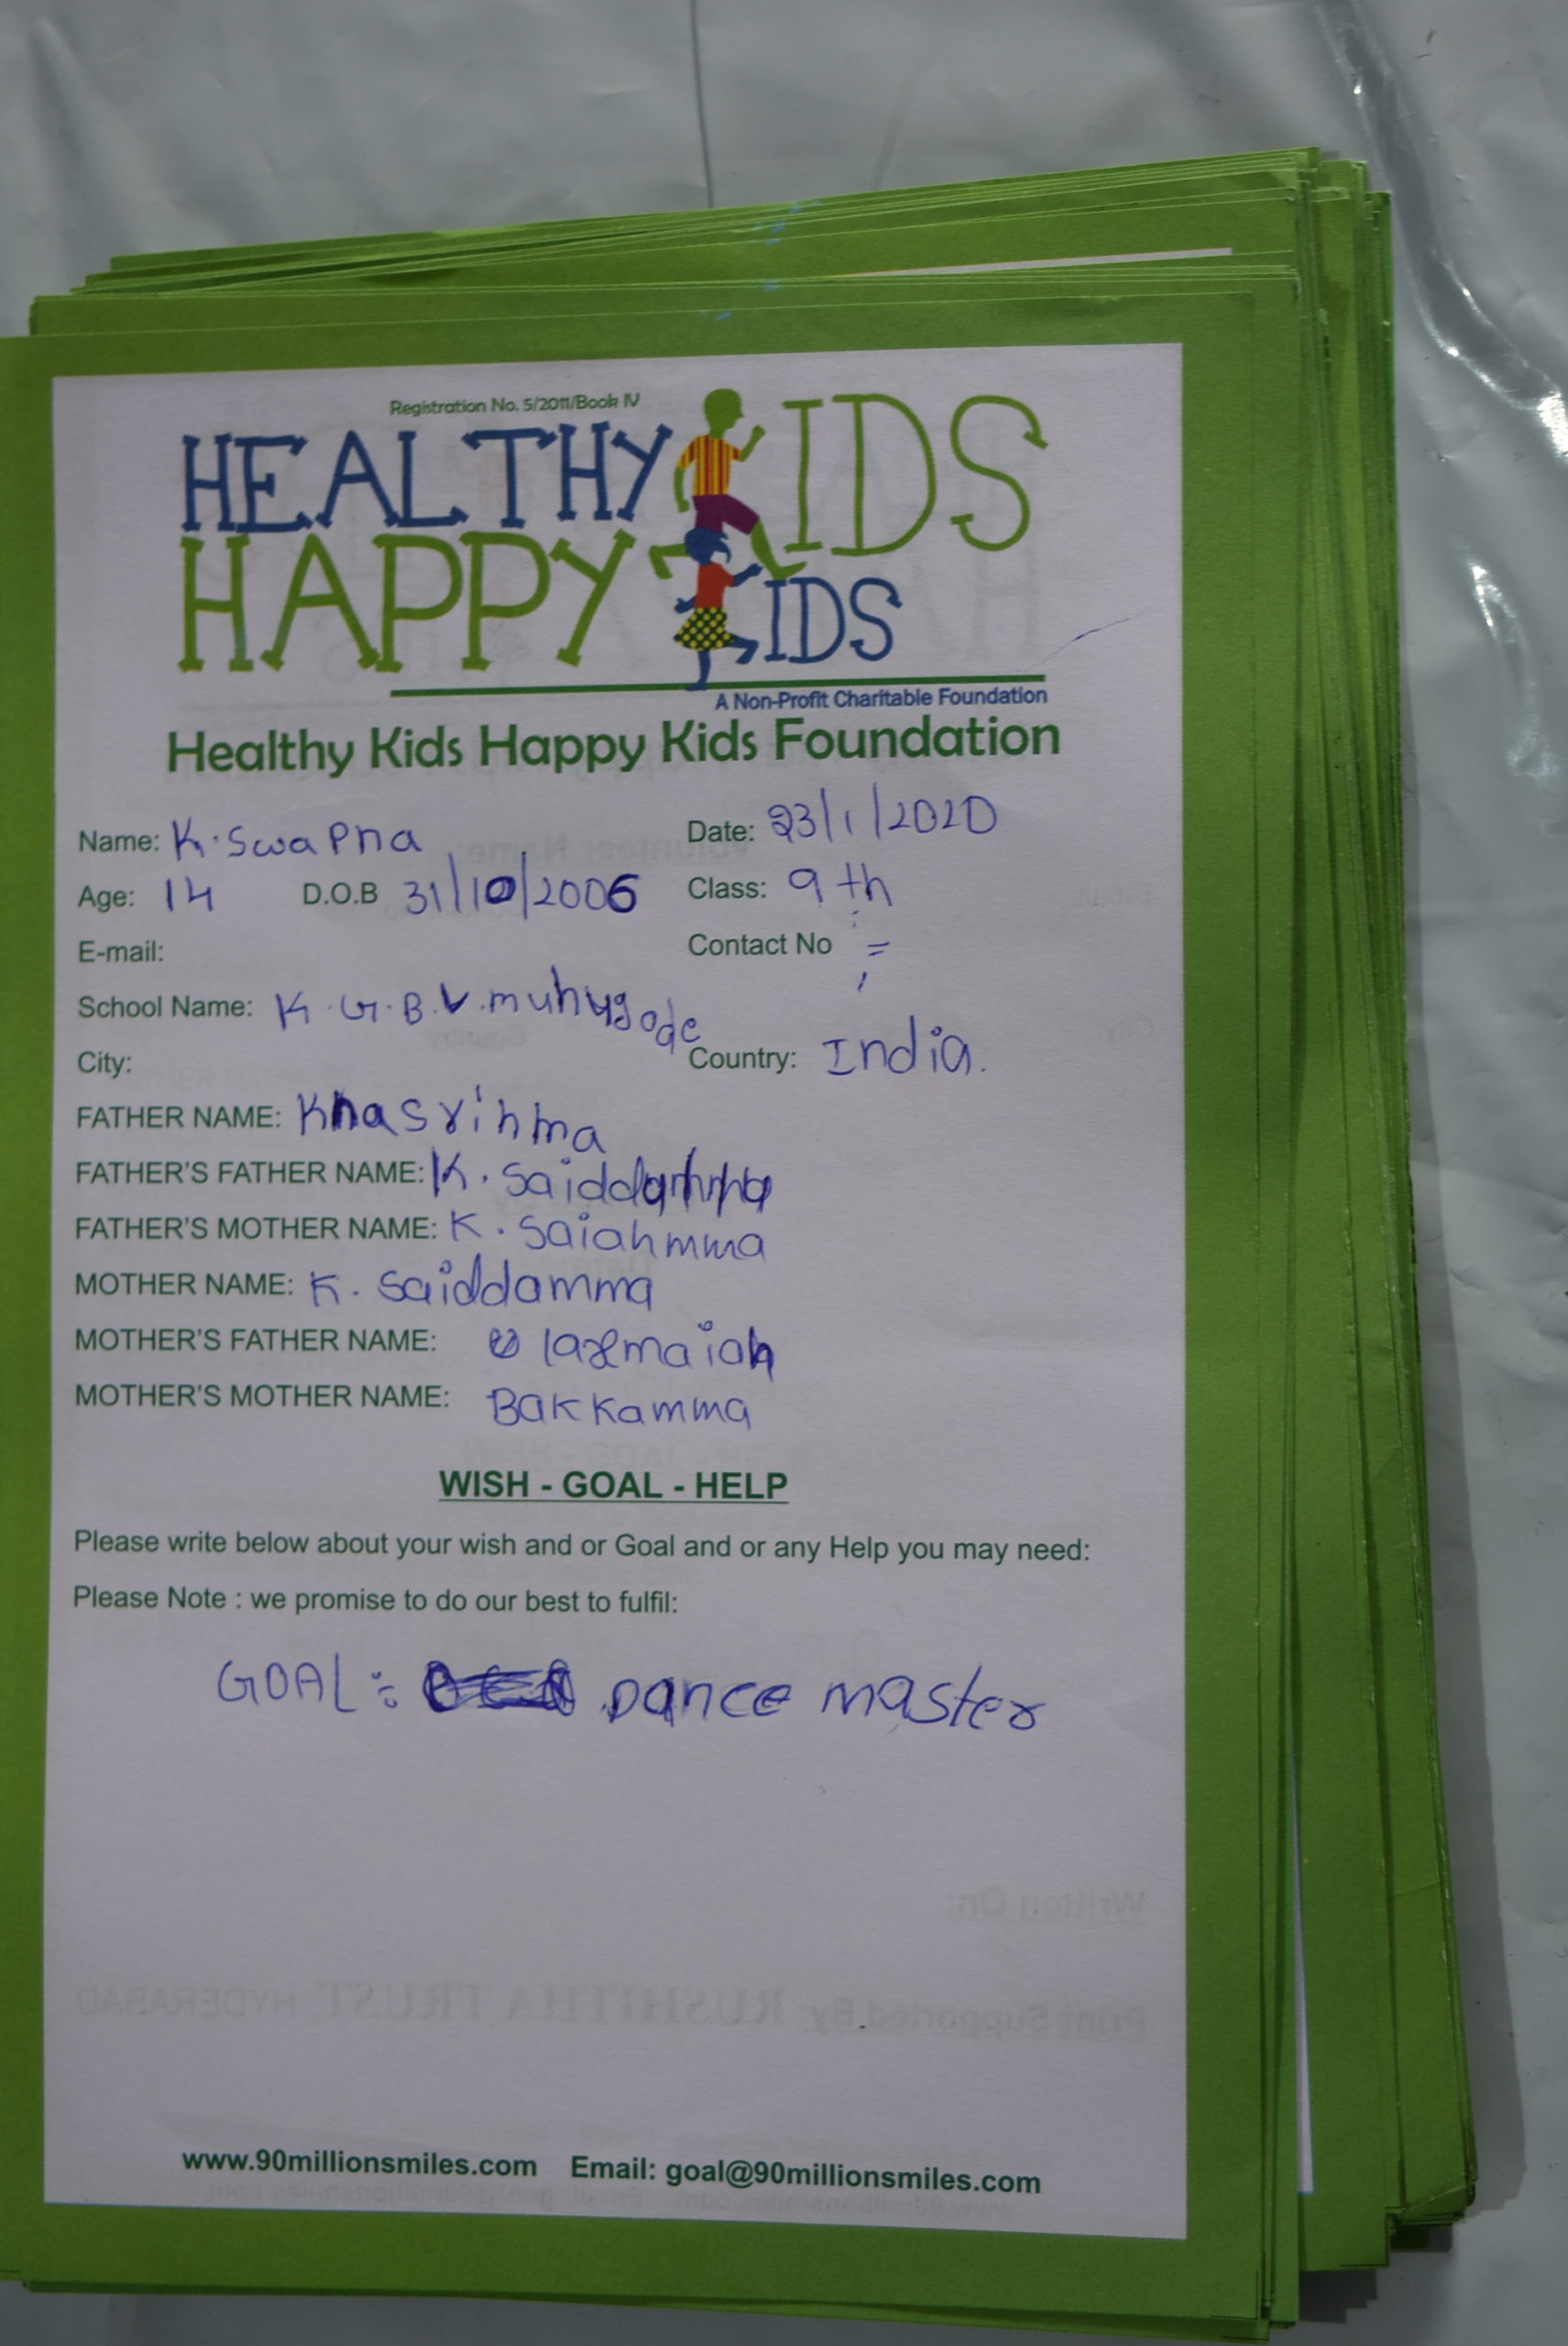 Registration No. 5/2011/Book IV
HEALTHY KIDS
HAPPY KIDS
A Non-Profit Charitable Foundation
Healthy Kids Happy Kids Foundation
Name: K. Swapna Date: 23/1/2020
Age: 14 D.O.B 31/10/2006 Class: 9th
E-mail: Contact No
School Name: K.G.B.V.
City: Country: India.
FATHER NAME:
FATHER'S FATHER NAME: K.
FATHER'S MOTHER NAME: K. Saiahmma
MOTHER NAME: K. Saiddamma
MOTHER'S FATHER NAME:
MOTHER'S MOTHER NAME: Bakkamma
WISH - GOAL - HELP
Please write below about your wish and or Goal and or any Help you may need:
Please Note : we promise to do our best to fulfil:
GOAL: Dance master
www.90millionsmiles.com Email: goal@90millionsmiles.com